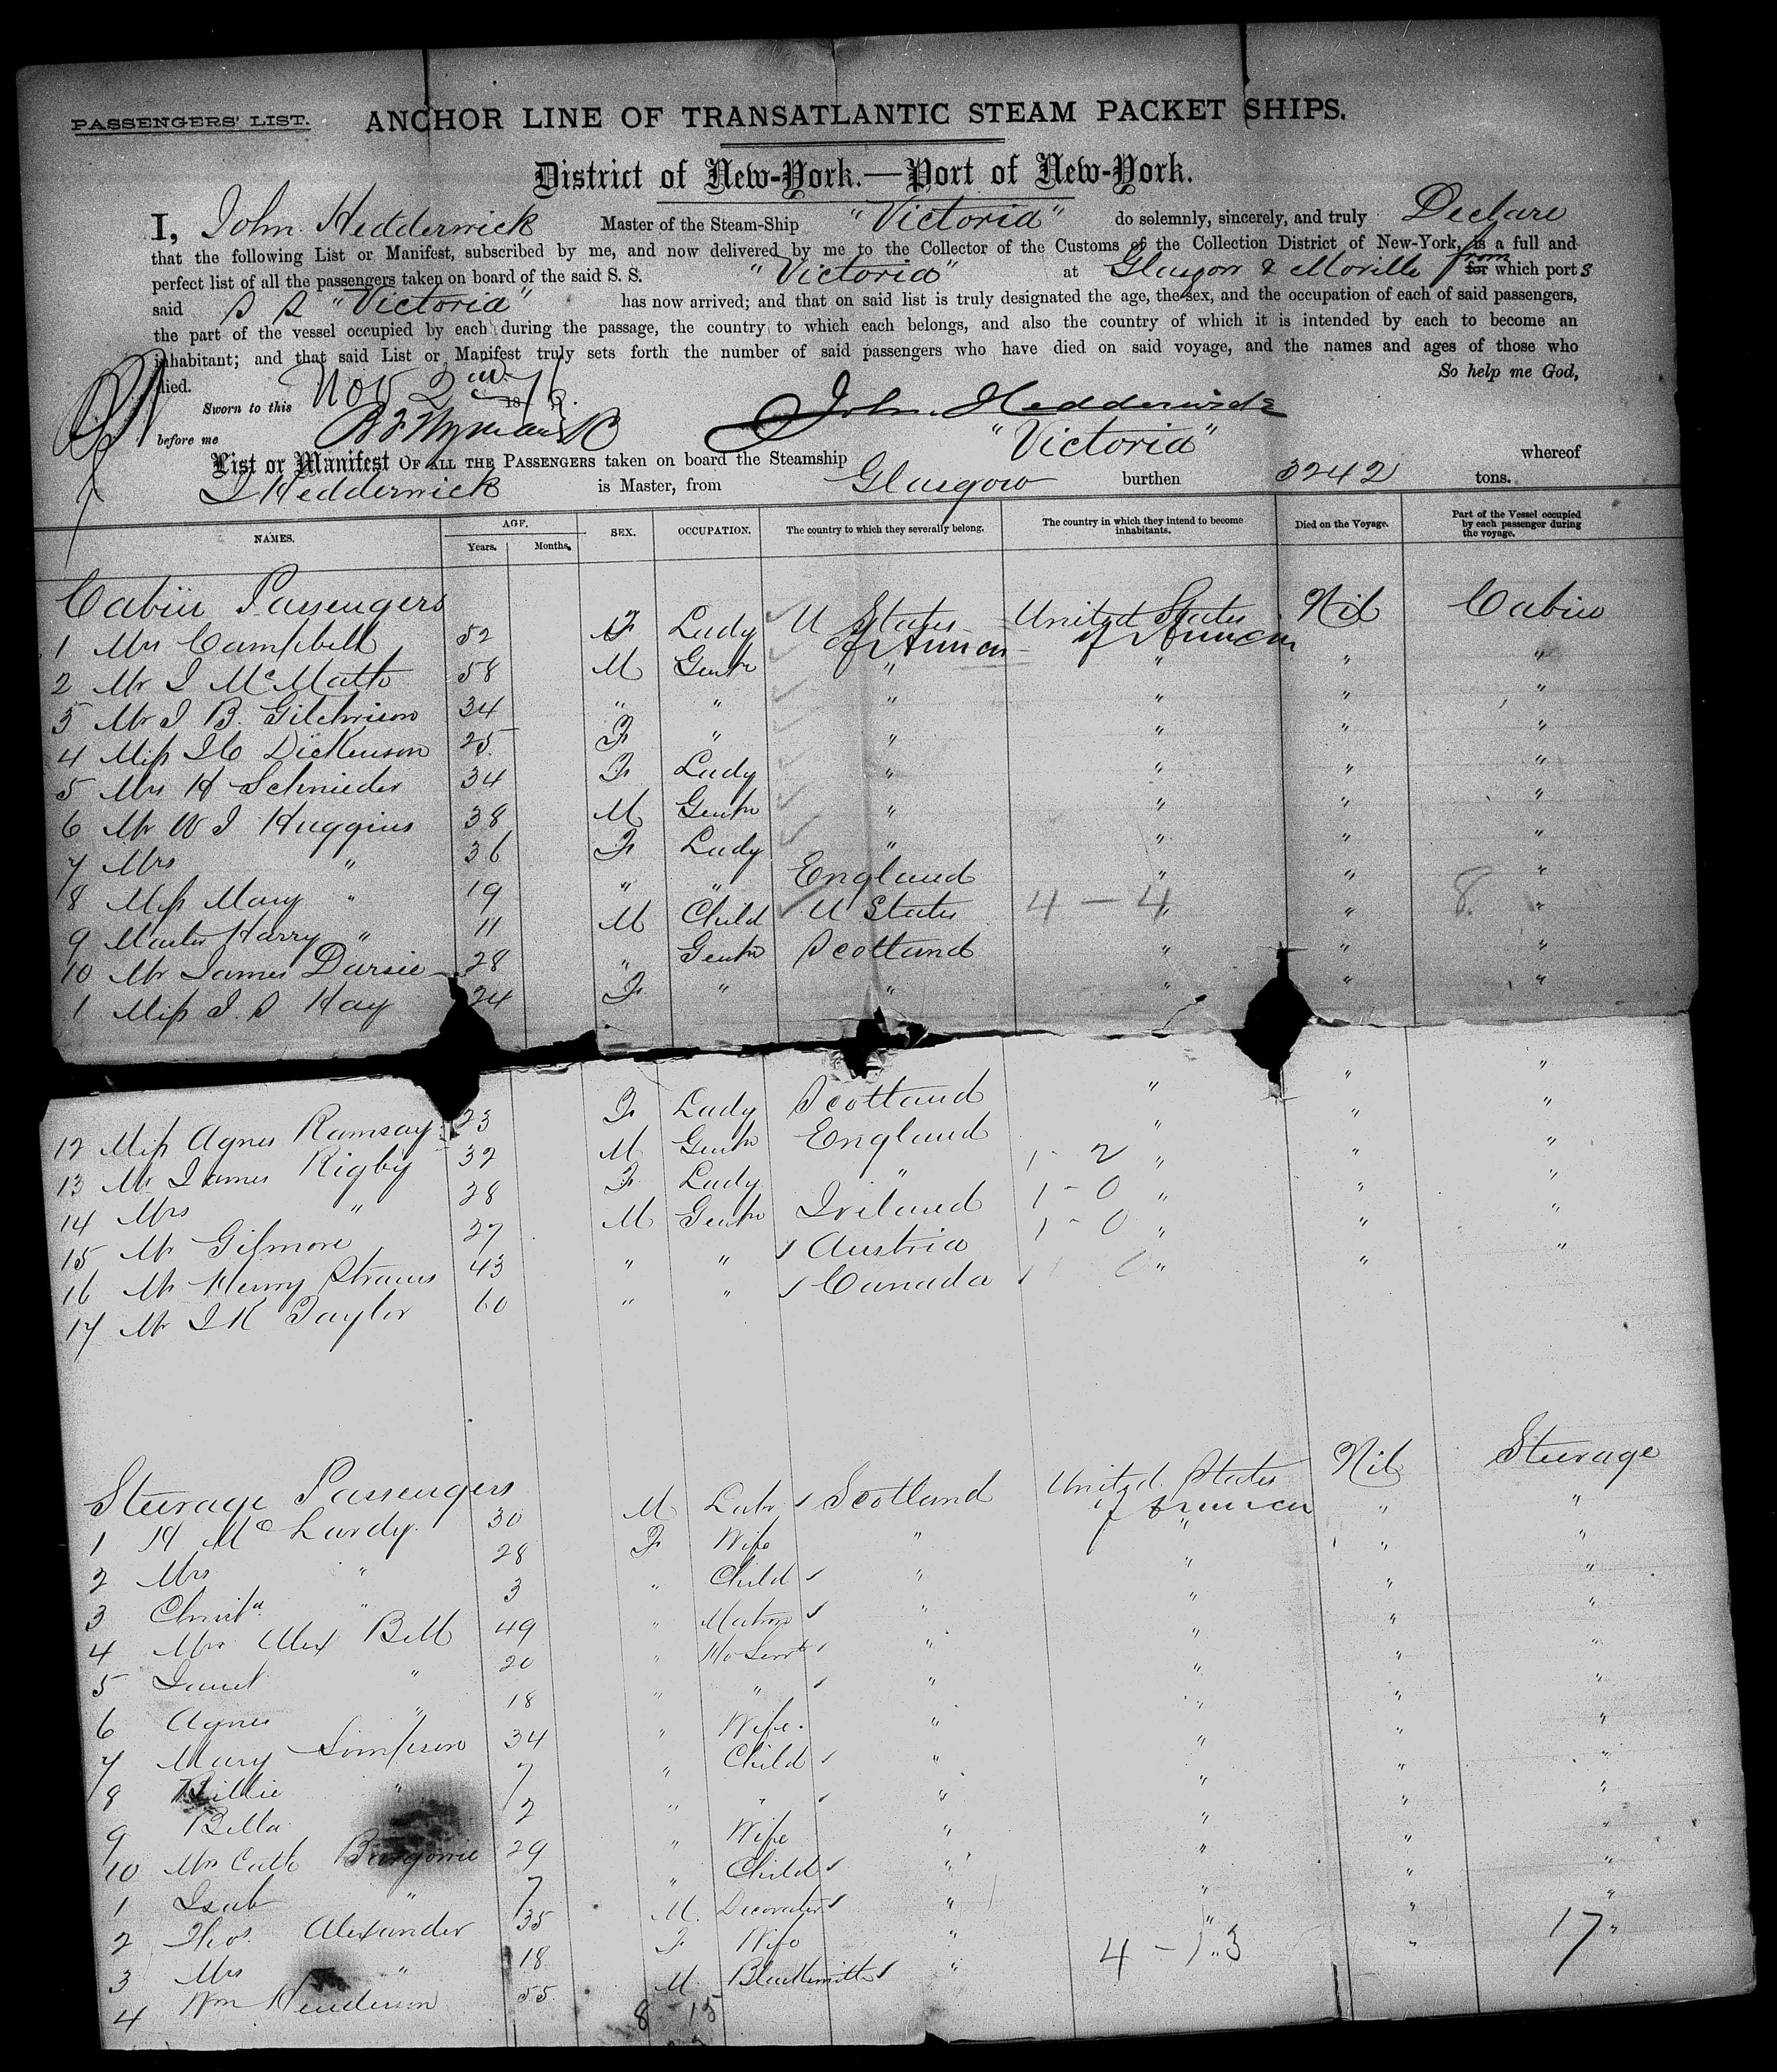 PASSENGERS' LIST. ANCHOR LINE OF TRANSATLANTIC STEAM PACKET SHIPS.
District of New-York.—Port of New-York.
I, John Hedderwick Master of the Steam-Ship "Victoria" do solemnly, sincerely, and truly Declare
that the following List or Manifest, subscribed by me, and now delivered by me to the Collector of the Customs of the Collection District of New-York, is a full and
perfect list of all the passengers taken on board of the said S. S. "Victoria" at Glasgow & Moville from for which ports
said S S "Victoria" has now arrived; and that on said list is truly designated the age, the sex, and the occupation of each of said passengers,
the part of the vessel occupied by each during the passage, the country to which each belongs, and also the country of which it is intended by each to become an
inhabitant; and that said List or Manifest truly sets forth the number of said passengers who have died on said voyage, and the names and ages of those who
died. So help me God,
Sworn to this Nov 2nd 1876.
before me John Hedderwick
List or Manifest OF ALL THE PASSENGERS taken on board the Steamship "Victoria" whereof
J Hedderwick is Master, from Glasgow burthen 3242 tons.
NAMES. AGE. Years. Months. SEX. OCCUPATION. The country to which they severally belong. The country in which they intend to become inhabitants. Died on the Voyage. Part of the Vessel occupied by each passenger during the voyage.
Cabin Passengers
1 Mrs Campbell 52 F Lady U States of America United States of America Nil Cabin
2 Mr J McMath 58 M Gentn " " " "
3 Mr J B. Gilchrison 34 " " " " " "
4 Miss J C Dickenson 25 F " " " " "
5 Mrs H Schnieder 34 F Lady " " " "
6 Mr W J Huggins 38 M Gentn " " " "
7 Mrs " 36 F Lady " " " "
8 Miss Mary " 19 " " England " " "
9 Master Harry " 11 M Child U States 4 - 4 " " 8 "
10 Mr James Darsie 28 " Gentn Scotland " " "
1 Miss J. S Hay 24 F " " " " "
12 Miss Agnes Ramsay 23 F Lady Scotland " " "
13 Mr James Rigby 32 M Gentn England " " "
14 Mrs " 28 F Lady " 1 - 2 " " "
15 Mr Gilmore 27 M Gentn Ireland 1 - 0 " " "
16 Mr Henry Straus 43 " " Austria 1 - 0 " " "
17 Mr J K Taylor 60 " " Canada " " "
Steerage Passengers
1 H McLardy 30 M Labr Scotland United States of America Nil Steerage
2 Mrs " 28 F Wife " " " "
3 Christa " 3 " Child " " " "
4 Mrs Alex Bell 49 " Matron " " " "
5 Janet " 20 " Ho Servt " " " "
6 Agnes " 18 " " " " " "
7 Mary Simpson 34 " Wife " " " "
8 Billie " 7 " Child " " " "
9 Bella 2 " " " " " "
10 Mrs Cath Burgonie 29 " Wife " " " "
1 Isab " 7 " Child " " " "
2 Thos. Alexander 35 M. Decorater " " " "
3 Mrs " 18 F Wife " " " 17 "
4 Wm Henderson 55 M Blacksmith " 4 - 13
8 15